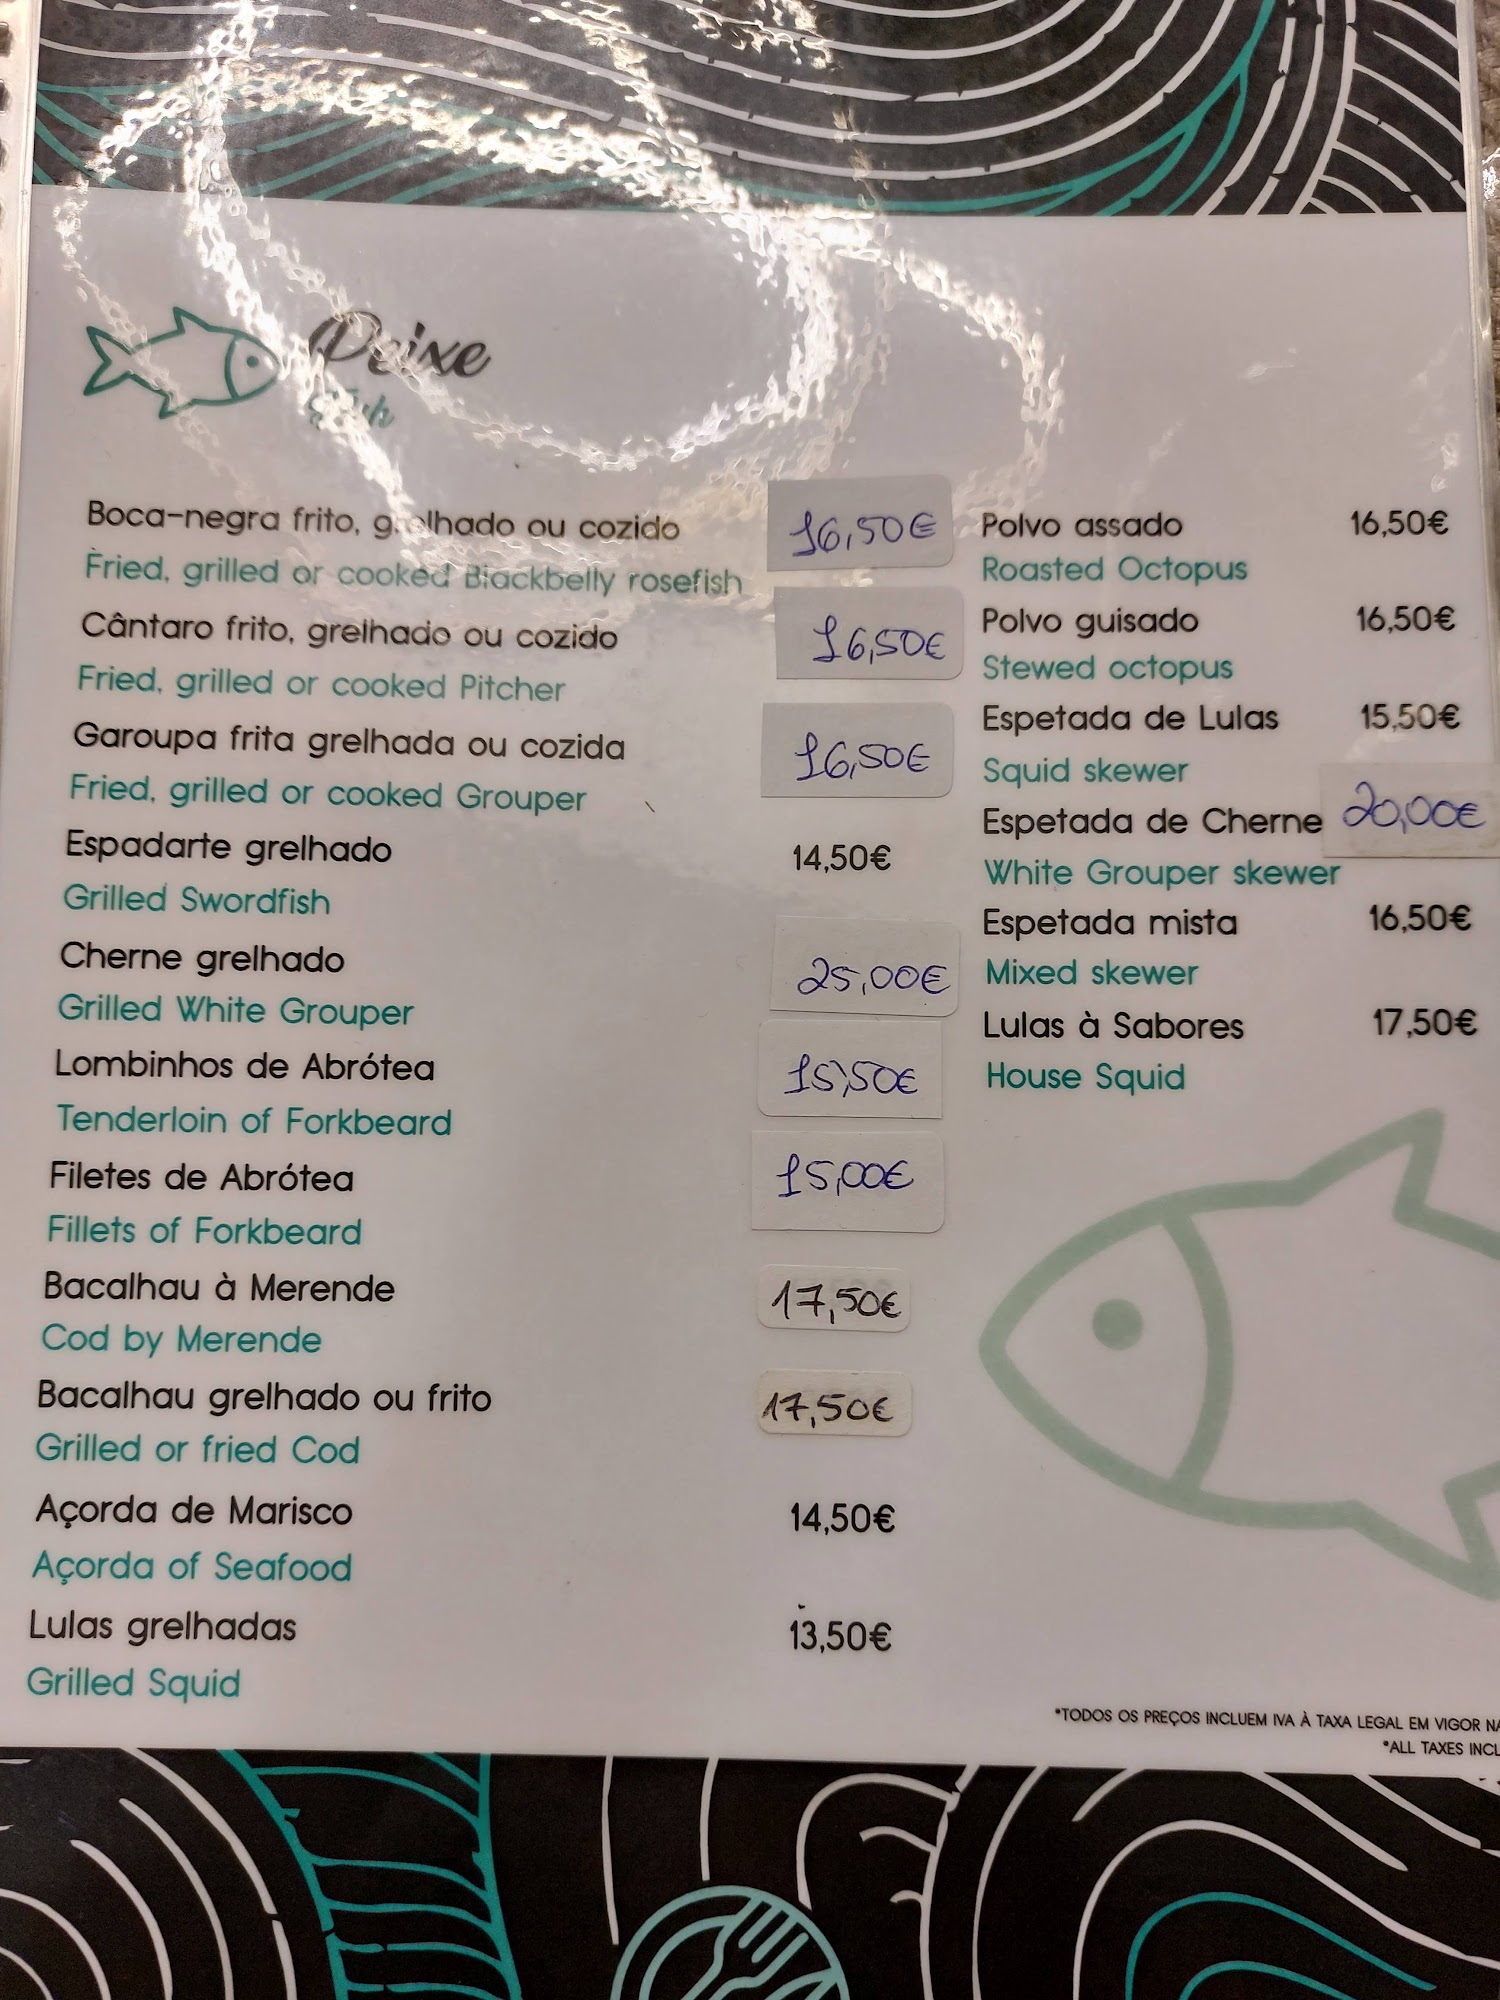 Peixe
Fish
Boca-negra frito, grelhado ou cozido 16,50€
Fried, grilled or cooked Blackbelly rosefish
Cântaro frito, grelhado ou cozido 16,50€
Fried, grilled or cooked Pitcher
Garoupa frita grelhada ou cozida 16,50€
Fried, grilled or cooked Grouper
Espadarte grelhado 14,50€
Grilled Swordfish
Cherne grelhado 25,00€
Grilled White Grouper
Lombinhos de Abrótea 15,50€
Tenderloin of Forkbeard
Filetes de Abrótea 15,00€
Fillets of Forkbeard
Bacalhau à Merende 17,50€
Cod by Merende
Bacalhau grelhado ou frito 17,50€
Grilled or fried Cod
Açorda de Marisco 14,50€
Açorda of Seafood
Lulas grelhadas 13,50€
Grilled Squid
Polvo assado 16,50€
Roasted Octopus
Polvo guisado 16,50€
Stewed octopus
Espetada de Lulas 15,50€
Squid skewer
Espetada de Cherne 20,00€
White Grouper skewer
Espetada mista 16,50€
Mixed skewer
Lulas à Sabores 17,50€
House Squid
*TODOS OS PREÇOS INCLUEM IVA À TAXA LEGAL EM VIGOR NA
*ALL TAXES INCL